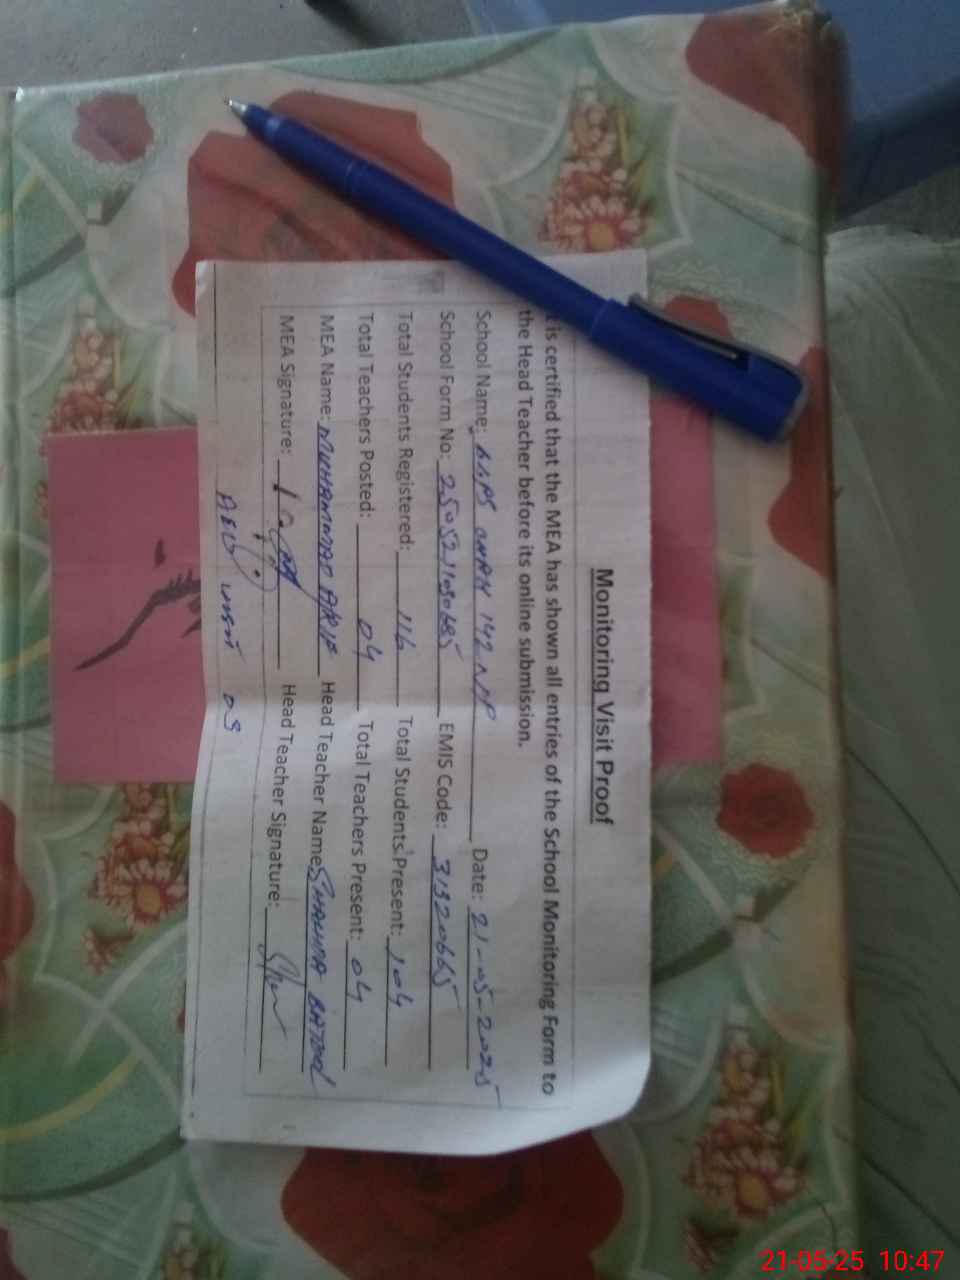 Monitoring Visit Proof
t is certified that the MEA has shown all entries of the School Monitoring Form to
the Head Teacher before its online submission.
School Name: CHAK 142 Date: 21-05-2025
School Form No: EMIS Code: 31320665
Total Students Registered: 116 Total Students' Present: 104
Total Teachers Posted: 04 Total Teachers Present: 04
MEA Name: MUHAMMAD ARIF Head Teacher Name: BATOOL
MEA Signature: Head Teacher Signature:
AEO 03
21-05-25 10:47